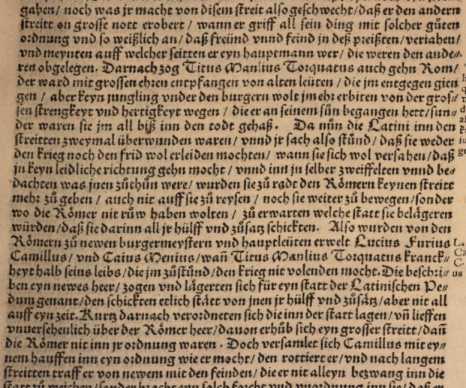 gaben / noch was jr macht von disem streit also geschwecht / daß er den andern
streit on grosse nott erobert / wann er griff all sein ding mit solcher güten
ordnung vnd so weißlich an / daß freünd vnnd feind in deß preißten / veriahen /
vnd meynten auff welcher seitten er eyn hauptmann wer / die weren den ande⸗
ren obgelegen. Darnach zog Titus Manlius Torquatus auch gehn Rom /
der ward mit grossen ehren entpfangen von alten leüten / die jm entgegen gien
gen / aber keyn jungling vnder den burgern wolt jm ehr erbiten von der gros⸗
sen strengkeyt vnd hertigkeyt wegen / die er an seinem sůn begangen hett / sun⸗
der waren sie jm all biß inn den todt gehaß. Da nůn die Latini inn den
streitten zweymal überwunden waren / vnnd jr sach also stůnd / daß sie weder
den krieg noch den frid wol erleiden mochten / wann sie sich wol versahen / daß
jn keyn leidliche richtung gehn mocht / vnnd inn jn selber zweiffelten vnnd be⸗
dachten was jnen zůthůn were / wurden sie zů radt den Römern keynen streitt
mehr zů geben / auch nit auff sie zů reysen / noch sie weiter zů bewegen / sonder
wo die Römer nit růw haben wolten / zů erwarten welche statt sie belägeren
würden / daß sie darinn all jr hülff vnd zůsatz schickten. Also wurden von den
Römern zů newen burgermeystern vnd hauptleüten erwelt Lucius Furius
Camillus / vnd Caius Menius / wañ Titus Manlius Torquatus kranck⸗
heyt halb seins leibs / die jm zůstůnd / den krieg nit volenden mocht. Die beschri⸗
ben eyn newes heer / zogen vnd lägerten sich für eyn statt der Latinischen Pe⸗
dum genant / den schickten etlich stätt von jnen jr hülff vnd zůsatz / aber nit all
auff eyn zeit. Kurtz darnach verordneten sich die inn der statt lagen / vñ lieffen
vnuersehenlich über der Römer heer / dauon erhůb sich eyn grosser streitt / dañ
die Römer nit inn jr ordnung waren. Doch versamlet sich Camillus mit ey⸗
nem hauffen inn eyn ordnung wie er mocht / den rottiert er / vnd nach langem
streitten traff er von newem mit den feinden / die er nit alleyn bezwang inn die